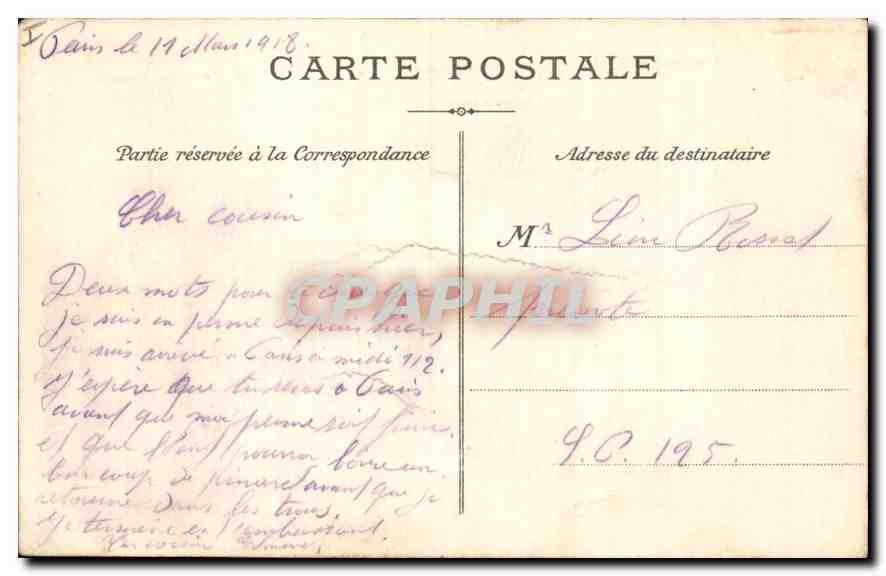 Paris le 11 Mars 1918.
CARTE POSTALE
Partie réservée à la Correspondance
Adresse du destinataire
Cher cousin
Deux mots pour que
je suis en perme depuis hier,
je suis arrivé à Paris à midi 1/2.
J'espère que tu seras à Paris
avant que ma perme soit finie
et que l'on pourra boire un
bon coup de pinard avant que je
retourne dans les trous.
Je termine en t'embrassant.
Ton cousin
M^r Léon
S.P. 195.
CPAPHIL